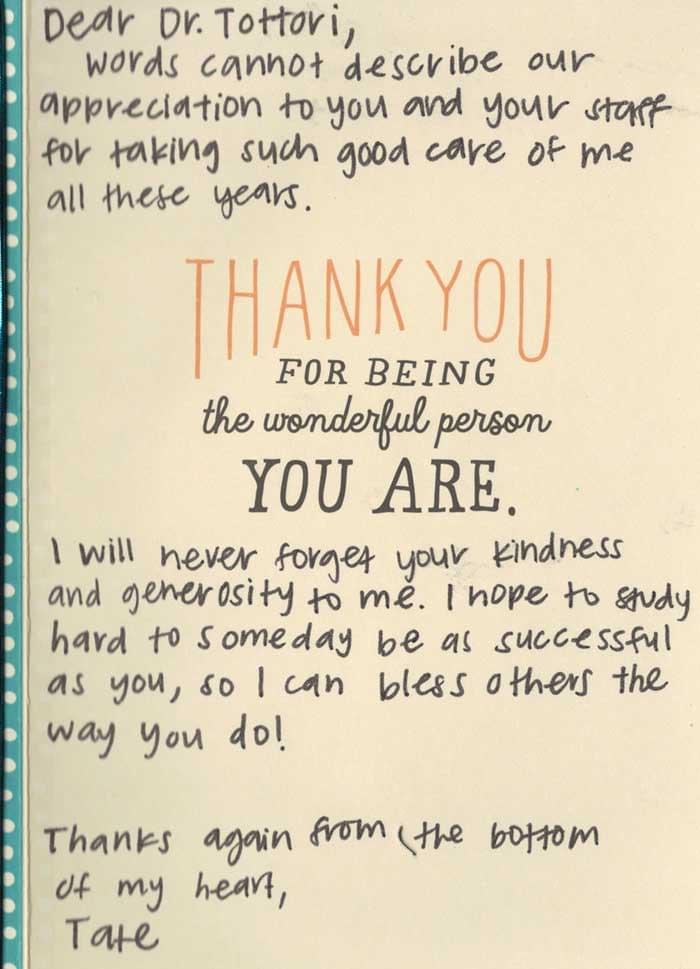 Dear Dr. Tottori,
words cannot describe our
appreciation to you and your staff
for taking such good care of me
all these years.
THANK YOU
FOR BEING
the wonderful person
YOU ARE.
I will never forget your kindness
and generosity to me. I hope to study
hard to someday be as successful
as you, so I can bless others the
way you do!
Thanks again from the bottom
of my heart,
Tate